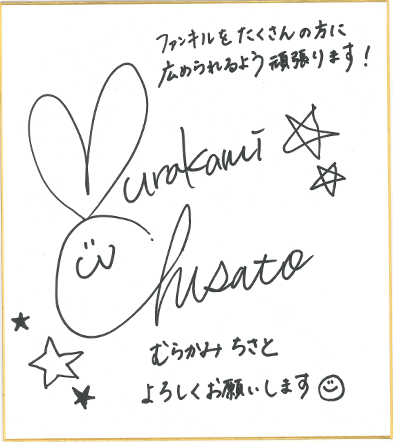 ファンキルをたくさんの方に
広められるよう頑張ります!
Murakami
Chisato
むらかみちさと
よろしくお願いします